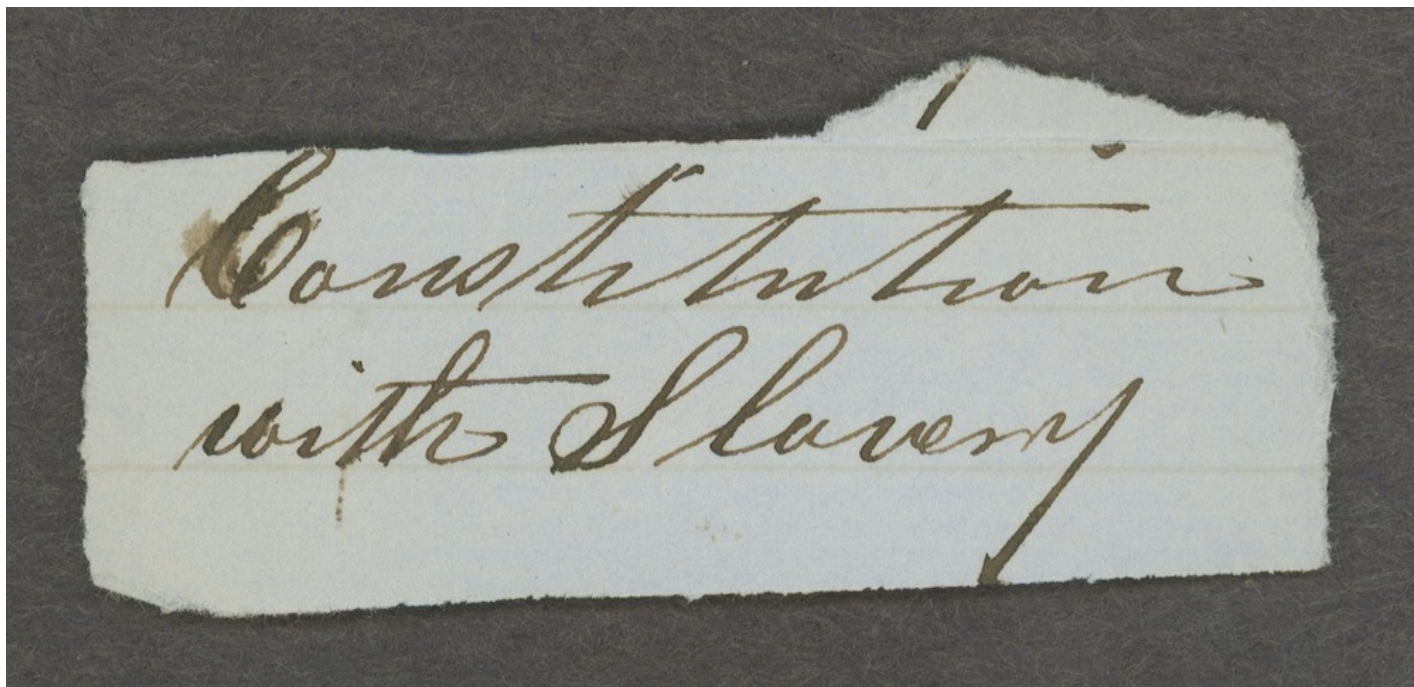 Constitution
with Slavery